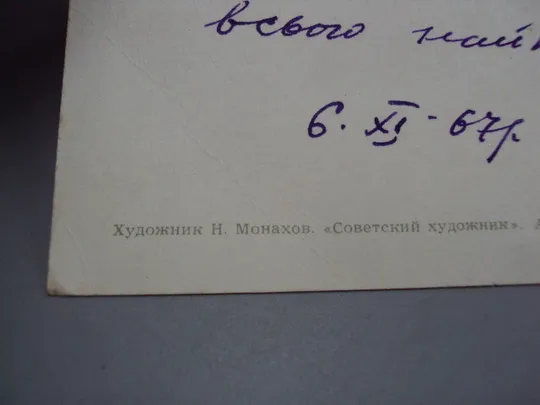 всього най
6. XI - 67р.
Художник Н. Монахов. «Советский художник». А